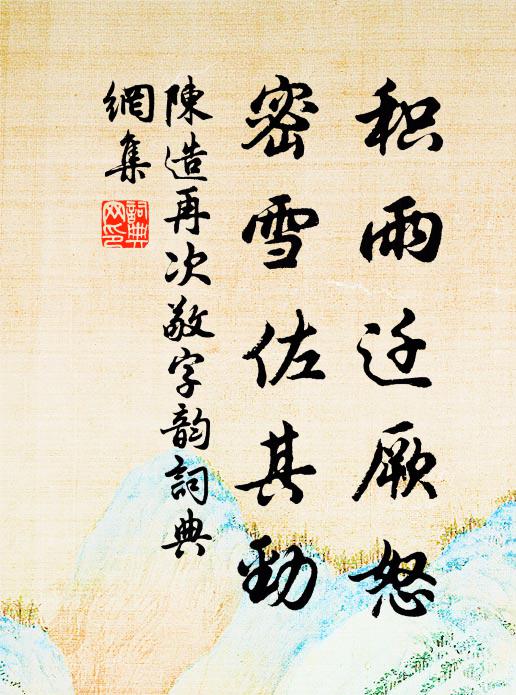 积雨迁厥怒
密雪佐其劲
陳造再次敬字韵詞典
網集
詞典
网印